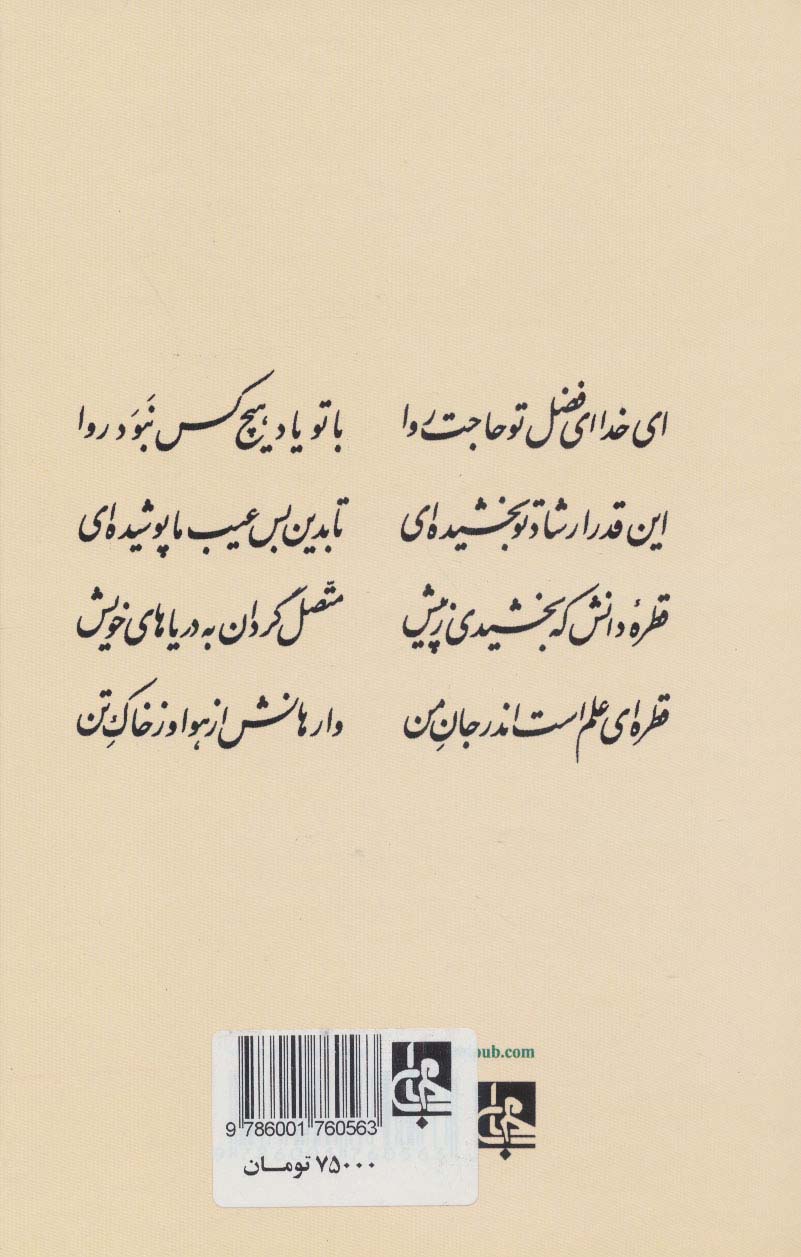 ای خدا ای فضل تو حاجت روا با تو یاد هیچ کس نَبوَد روا
این قدر ارشاد تو بخشیده‌ای تا بدین بس عیب ما پوشیده‌ای
قطرهٔ دانش که بخشیدی ز پیش متّصل گردان به دریاهای خویش
قطره‌ای علم است اندر جانِ من وارهانش از هوا وز خاکِ تن
pub.com
9 786001 760563
۷۵۰۰۰ تومــان